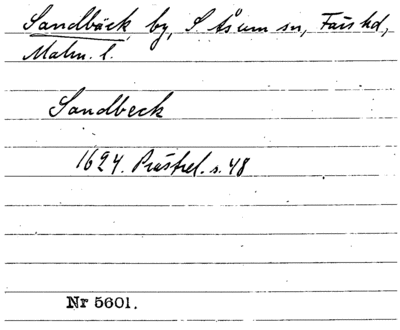 Sandbäck, by, S. Åsum sn, Färs hd,
Malm. l.
Sandbeck
1624. Prästrel. s. 48
Nr 5601.